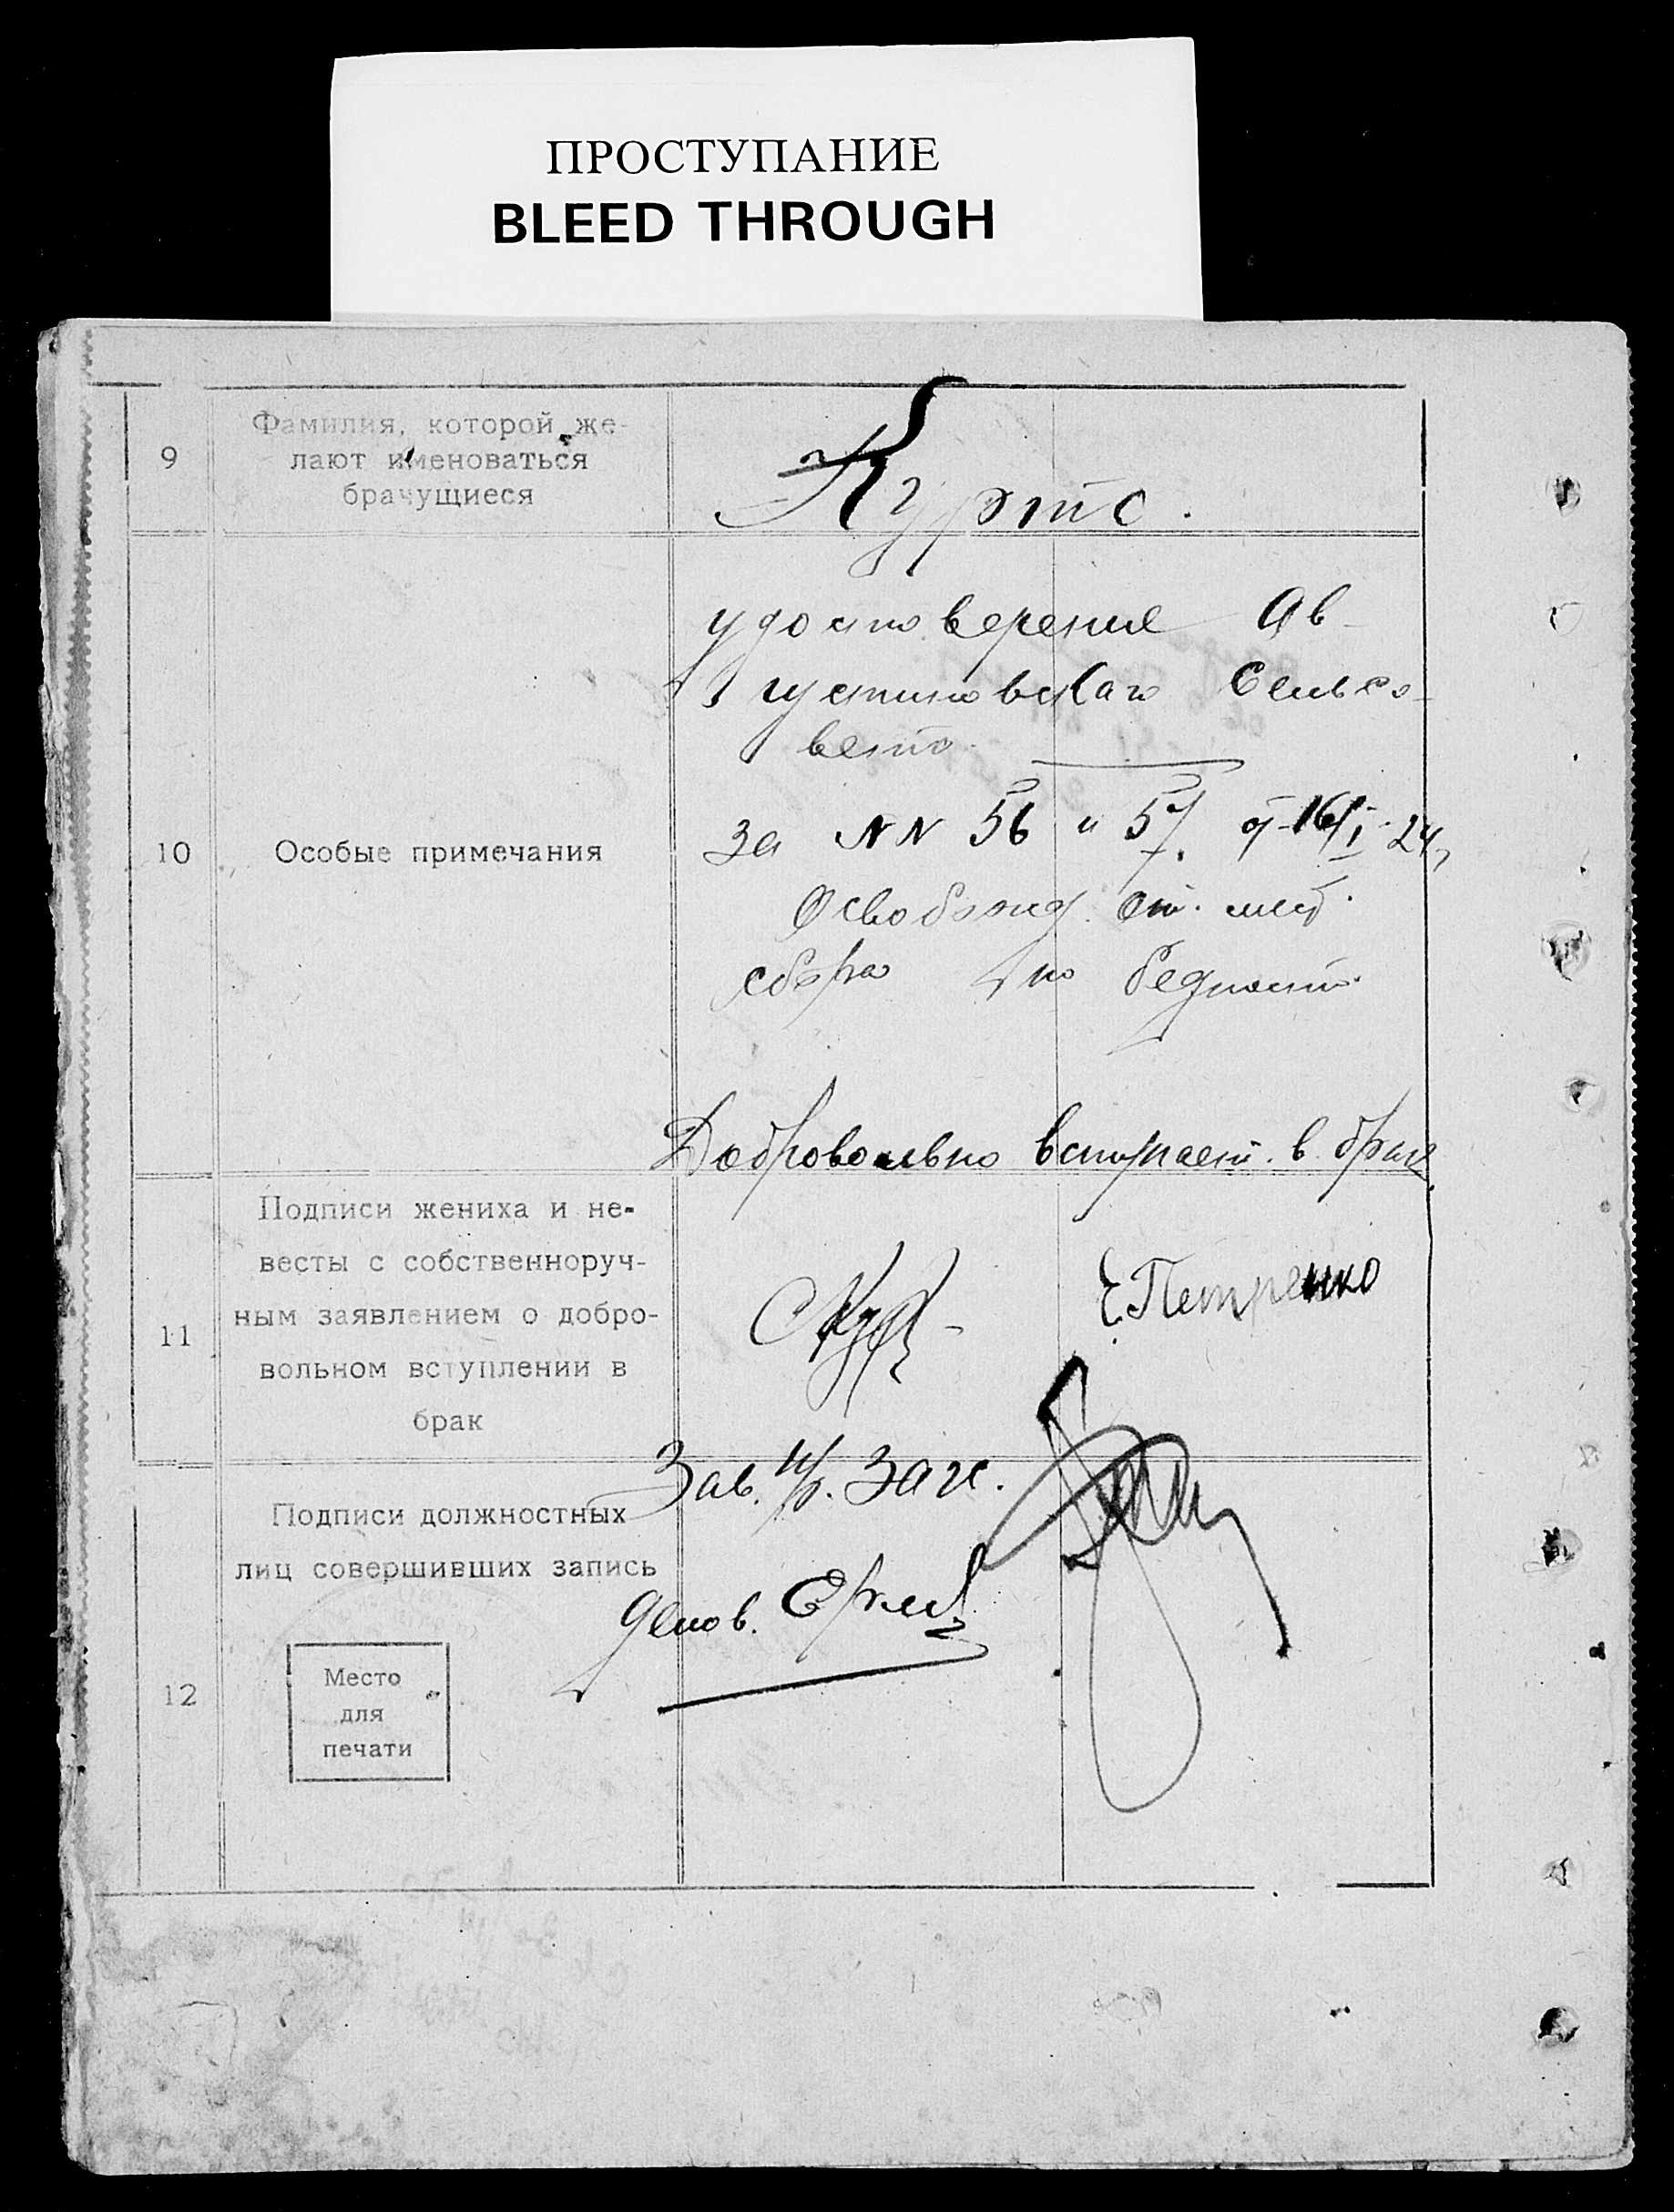 ПРОСТУПАНИЕ
BLEED THROUGH
9
Фамилия, которой же-
лают именоваться
брачущиеся
Куртс.
10
Особые примечания
удостоверение Ав-
густиновскаго Сельсо-
вета
за NN 56 и 57 от 16/I-24
Освобожд. от. мест.
сбора по бедности
Добровольно вступает. в брак
11
Подписи жениха и не-
весты с собственноруч-
ным заявлением о добро-
вольном вступлении в
брак
Е. Петренко
12
Подписи должностных
лиц совершивших запись
Зав. п/о. Загс.
Делов.
Место
для
печати